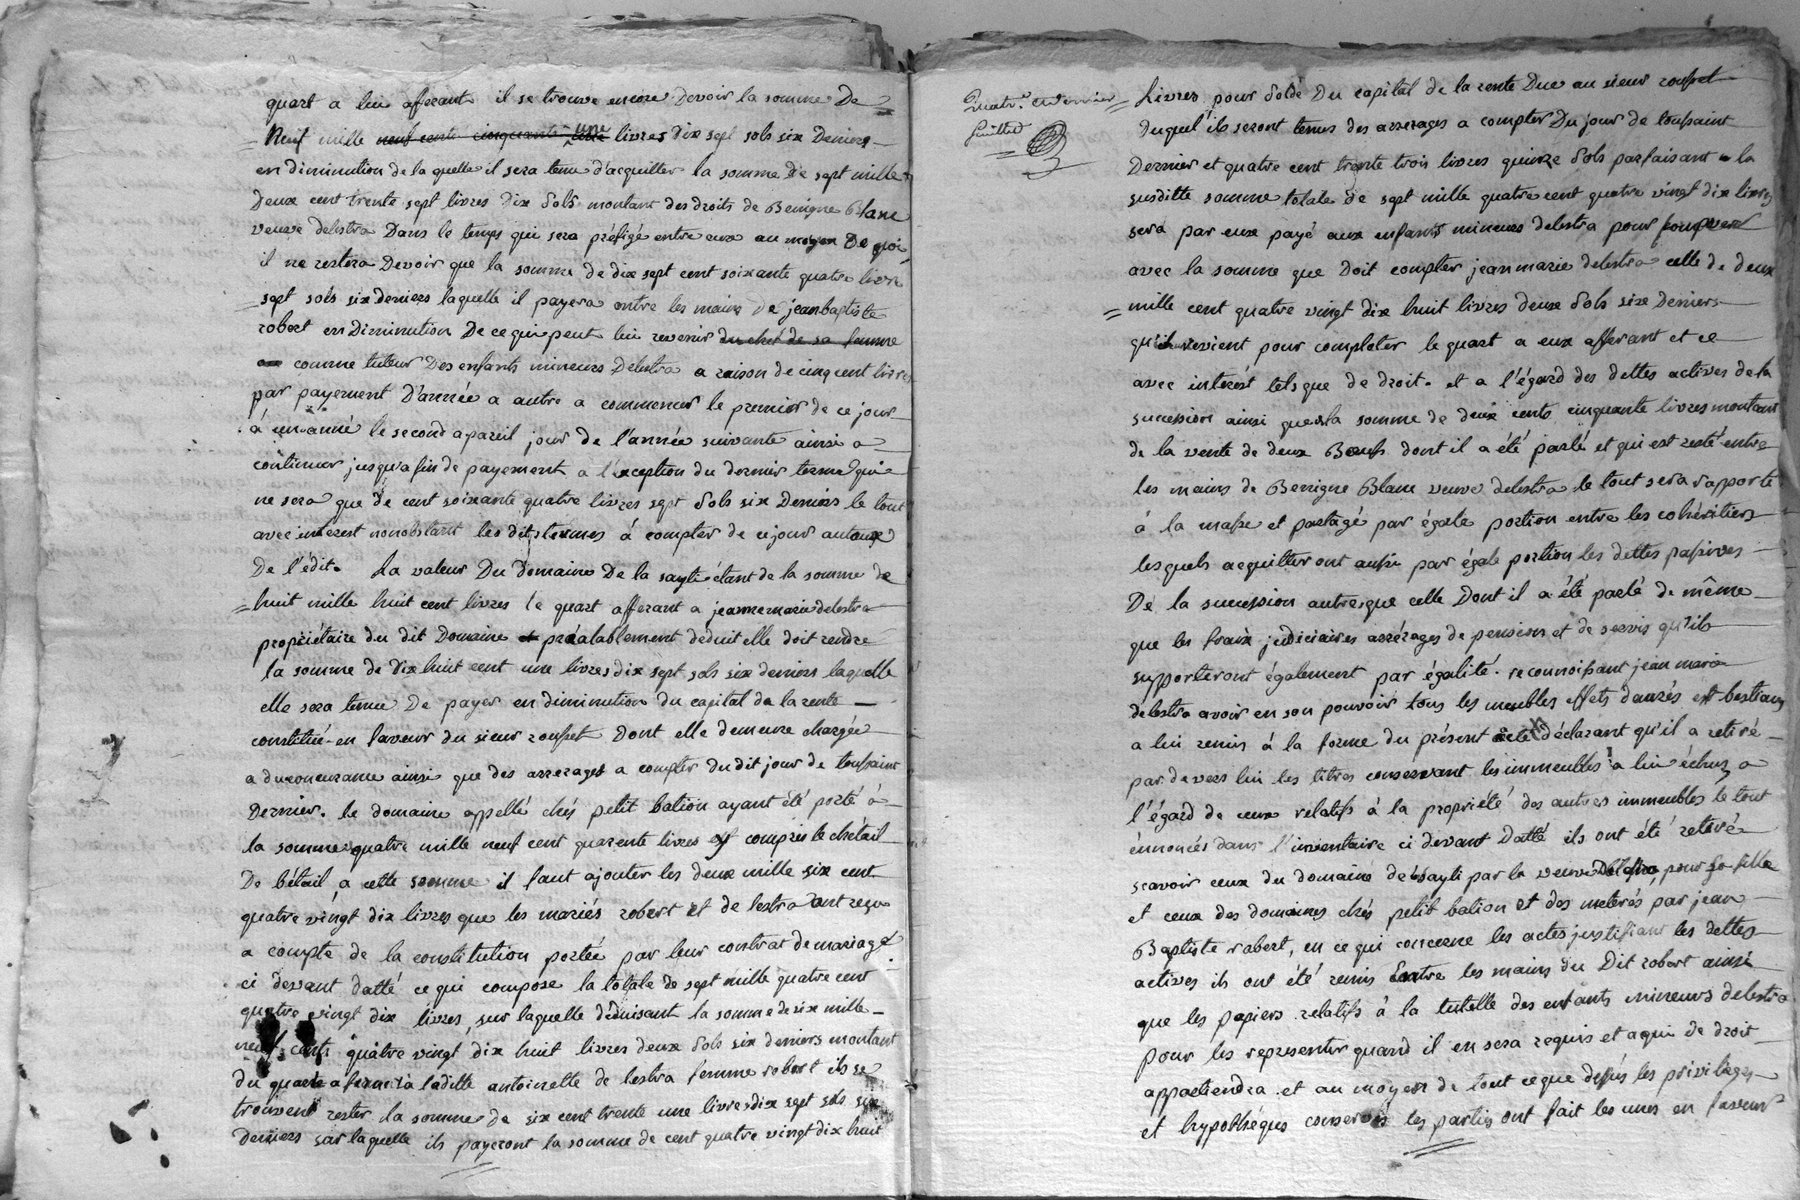 quart a lui afferant il se trouve encore Devoir la somme De
Neuf mille neuf cents cinquante une livres Dix sept sols six Deniers
en diminution de la quelle il sera tenu d'acquitter la somme de sept mille
Deux cent trente sept livres Dix sols montant des droits de Benigne Blanc
veuve delestra Dans le temps qui sera préfigé entre eux au moyen De quoi
il ne restera Devoir que la somme de dix sept cent soixante quatre livres
sept sols six deniers laquelle il payera entre les mains De jean baptiste
robert en Diminution De ce qui peut lui revenir du chef de sa femme
comme tuteur Des enfants mineurs Delestra a raison de cinq cent livres
par payement D'année a autre a commencer le premier de ce jour
á un année le second a pareil jour de l'année suivante ainsi a
continuer jusqu'a fin de payement a l'exception du dernier terme qui
ne sera que de cent soixante quatre livres sept sols six Deniers le tout
avec interest nonobstant les dits termes á compter de ce jour au taux
De l'édit. La valeur Du Domaine De la sayti étant de la somme de
huit mille huit cent livres le quart afferant a jeanne marie delestra
propriétaire du dit Domaine préalablement déduit elle doit rendre
la somme de Dix huit cent une livres dix sept sols six deniers laquelle
elle sera tenue De payer en diminution du capital de la rente
constitué en faveur du sieur rousset Dont elle demeure chargée
a due concurance ainsi que des arrerages a compter du dit jour de toussaint
Dernier. le domaine appellé chés petit bation ayant été porté á
la somme quatre mille neuf cent quarente livres y compris le chétail
De bétail, a cette somme il faut ajouter les deux mille six cent
quatre vingt dix livres que les mariés robert et de lestra ont reçu
a compte de la constitution portée par leur contrat de mariage
ci devant datté ce qui compose la totale de sept mille quatre cent
quatre vingt dix livres, sur laquelle déduisant la somme de six mille
neuf cents quatre vingt dix huit livres deux sols six deniers montant
du quart afferant à laditte antoinette de lestra femme robert ils se
trouvent rester la somme de six cent trente une livres dix sept sols six
deniers sur laquelle ils payeront la somme de cent quatre vingt dix huit
Quatr.e et dernier
feuillet
Livres pour solde Du capital de la rente Due au sieur rousset
duquel ils seront tenus des arrerages a compter Du jour de toussaint
Dernier et quatre cent trente trois livres quinze sols parfaisant la
susditte somme totale de sept mille quatre cent quatre vingt dix livres
sera par eux payé aux enfants mineurs delestra pour
avec la somme que Doit compter jean marie delestra celle de deux
mille cent quatre vingt dix huit livres deux sols six Deniers
qu'il revient pour completer le quart a eux afferant et ce
avec intérést tels que de droit. et a l'égard des dettes actives de la
succession ainsi que la somme de deux cents cinquante livres montant
de la vente de deux Bœufs dont il a été parlé et qui est resté entre
les mains de Benigne Blanc veuve delestra le tout sera rapporté
á la masse et partagé par égale portion entre les cohéritiers
lesquels acquitteront aussi par égale portion les dettes passives
De la succession autres que celle Dont il a été parlé de même
que les fraix judiciaires arrérages de pension et de servis qu'ils
supporteront également par égalité. reconnoissant jean marie
delestra avoir en son pouvoir tous les meubles effets danrés et bestiaux
a lui remis á la forme du présent acte déclarant qu'il a retiré
par devers lui les titres conservant les immeubles a lui échus, a
l'égard de ceux relatifs á la propriété des autres immeubles le tout
énnoncés dans l'inventaire ci devant Datté ils ont été retirés
scavoir ceux du domaine de sayti par la veuve Delestra, pour sa fille
et ceux des domaines chés petit bation et des meterés par jean
Baptiste robert, en ce qui concerne les actes justifiant les dettes
actives ils ont été remis Entre les mains du Dit robert ainsi
que les papiers relatifs á la tutelle des enfants mineurs delestra
pour les representer quand il en sera requis et a qui de droit
appartiendra. et au moyen de tout ce que dessus les privileges
et hypothéques conservés les parties ont fait les unes en faveur